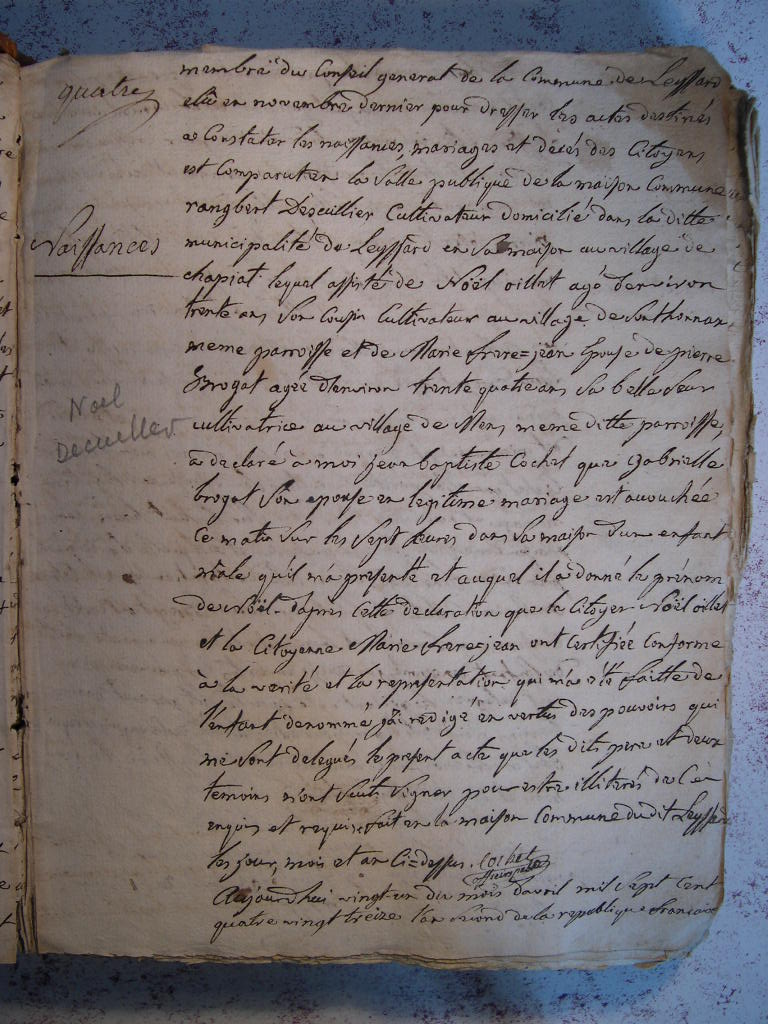 quatre
membre du Conseil general de la Commune de Leyssard
elu en novembre dernier pour dresser les actes destinés
a Constater les naissances, mariages et décés des Citoyens
est Comparu en la Salle publique de la maison Commune
rangbert Descuillier Cultivateur domicilié dans la ditte
Naissances
municipalité de Leyssard en Sa maison au village de
chapiat lequel assisté de Noël oillet agé denviron
trente ans Son Cousin Cultivateur au village de Sonthonnax
meme parroisse et de Marie frere=jean Epouse de pierre
Brogat agée d'environ trente quatre ans Sa belle Seur
Noel
Decuiller
cultivatrice au village de Mens meme ditte parroisse,
a declaré a moi jean baptiste Cochet que gabrielle
brogat Son epouse en legitime mariage est accouchée
Ce matin Sur les Sept heures dans Sa maison d'un enfant
mâle qu'il m'a presenté et auquel il a donné le prénom
de Noël. d'apres Cette declaration que le Citoyen Noël oillet
et la Citoyenne Marie frere=jean ont Certifiée Conforme
à la verité et la representation qui m'a été faitte de
l'enfant denommé, j'ai redigé en vertu des pouvoirs qui
me Sont delegués le present acte que les dits pere et deux
temoins n'ont Seuts Signer pour estre illiterés de Ce
enquis et requis. fait en la maison Commune du dit Leyssard
les jour, mois et an Ci=dessus. Cochet
Aujourd'hui vingt-un du mois davril mil Sept Cent
quatre vingt treize l'an Second de la republique francaise